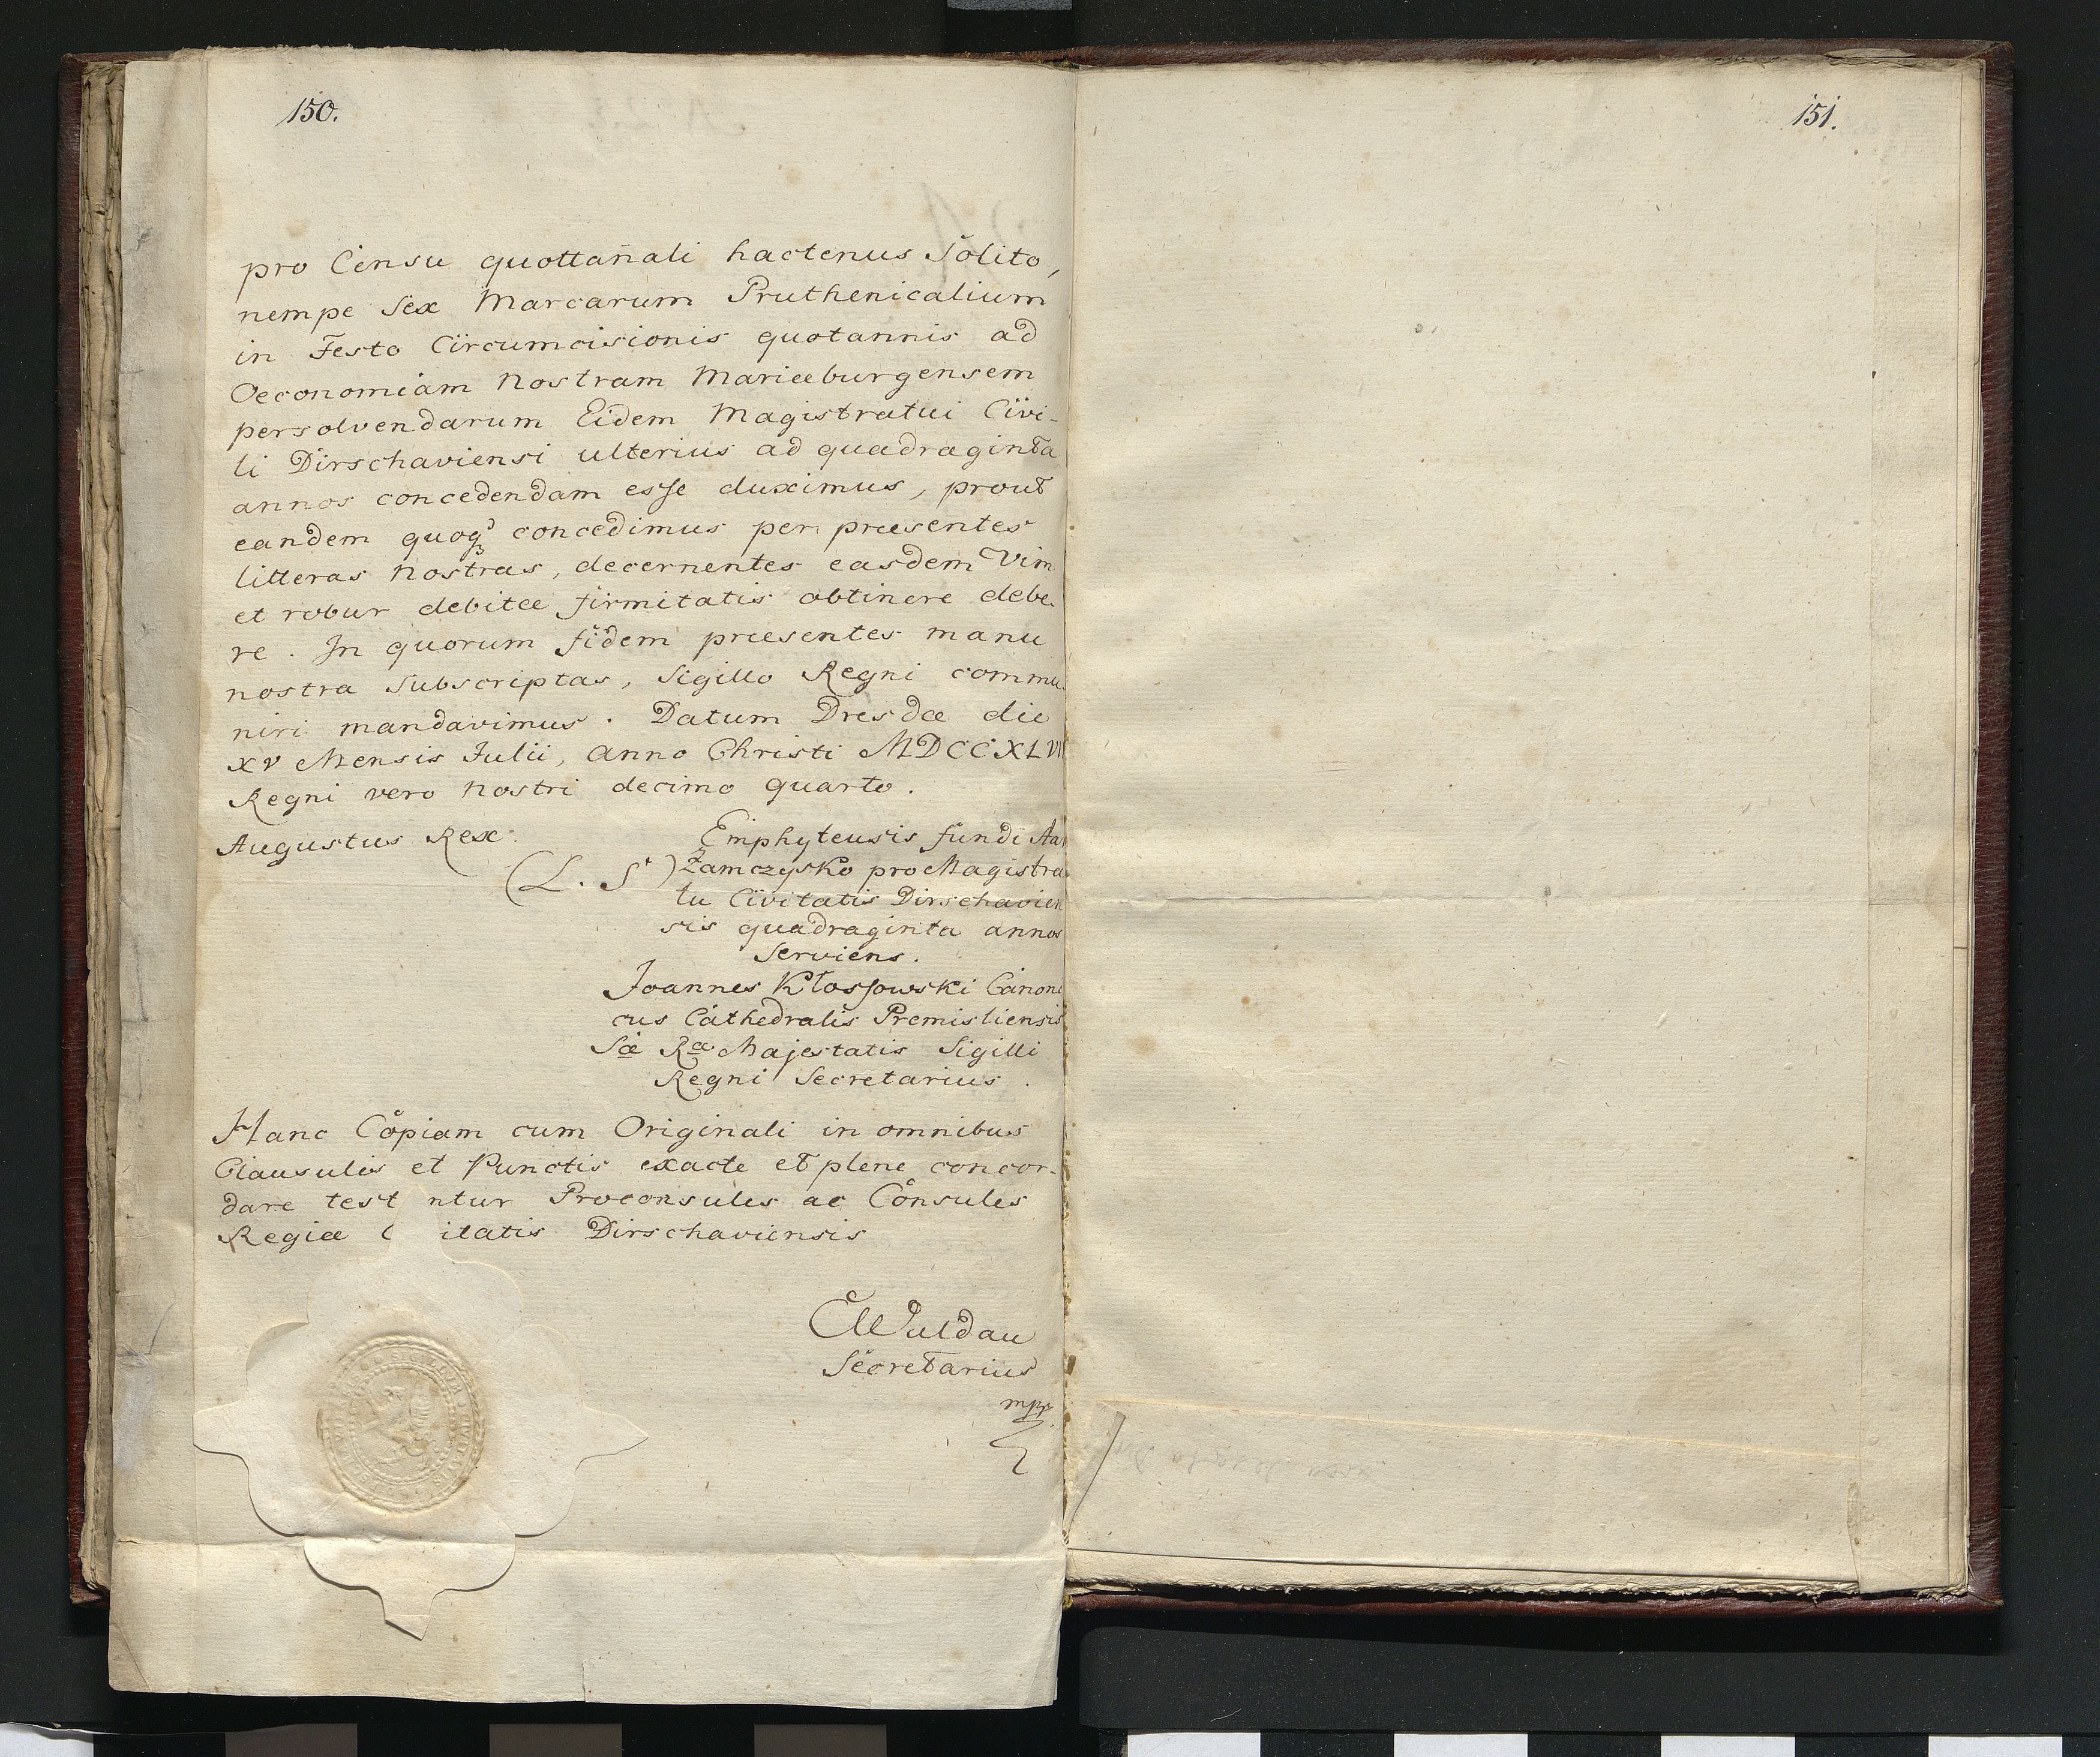 150.
151.
pro Censu quottan̄ali hactenus Solito,
nempe Sex Marcarum Pruthenicalium
in Festo Circumcisionis quotannis ad
Oeconomiam Nostram Mariæburgensem
persolvendarum Eidem Magistratui Civi-
li Dirschaviensi ulterius ad quadraginta
annos concedendam esse duximus, prout
eandem quoq₃ concedimus per præsentes
litteras Nostras, decernentes easdem Vim
et robur debitæ firmitatis obtinere debe-
re. In quorum fidem præsentes manu
nostra Subscriptas, Sigillo Regni commu-
niri mandavimus. Datum Dresdæ die
XV Mensis Julii, Anno Christi MDCCXLVII
Regni vero Nostri decimo quarto.
Augustus Rex.
Emphyteusis fundi
(L. S.) Zamczysko pro Magistra
tu Civitatis Dirschavien
sis quadraginta annos
Serviens.
Joannes Kłossowski Canoni
cus Cathedralis Premisliensis
Sæ Ræ Majestatis Sigilli
Regni Secretarius.
Hanc Copiam cum Originali in omnibus
Clausulis et Punctis exacte et plene concor-
dare test ntur Proconsules ac Consules
Regiæ C itatis Dirschaviensis
Secretarius
mpp.